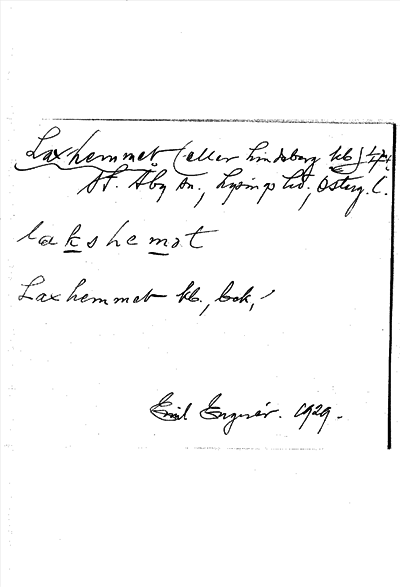 Laxhemmet (eller Lindeberg kb)
St. Åby sn., Lysings hd, Österg. l.
lakshemət
Laxhemmet kb,
Emil Engnér. 1929.